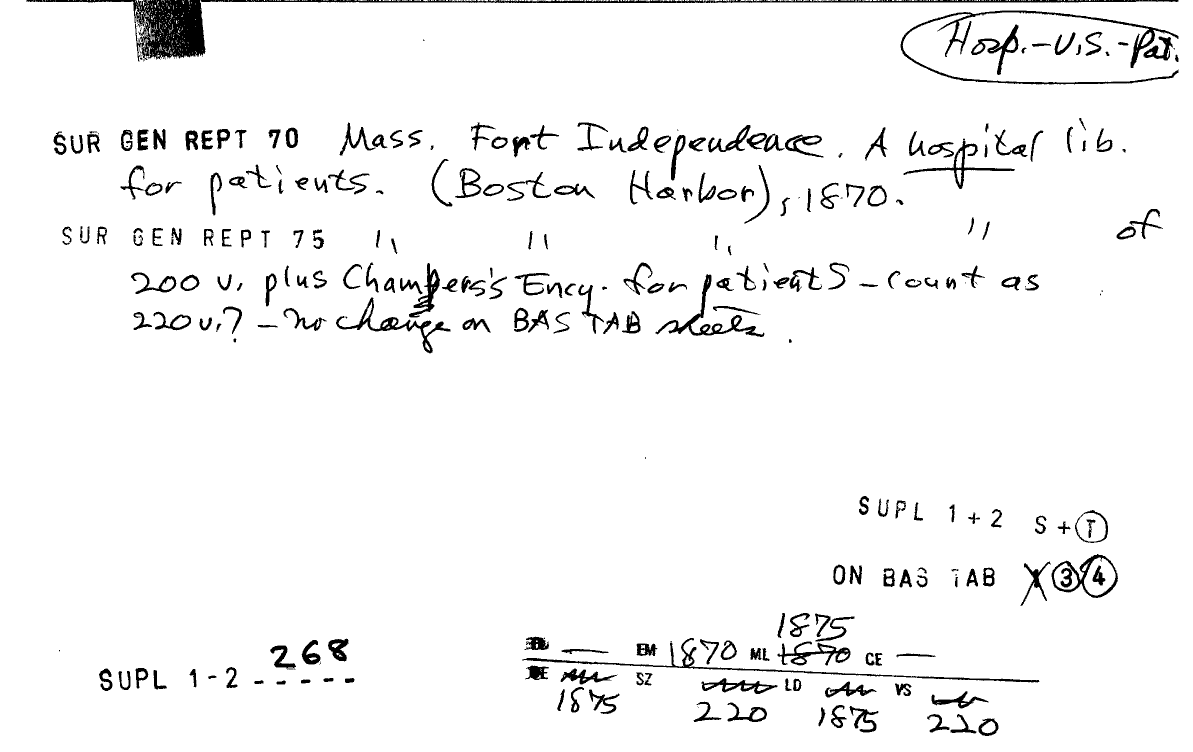 Hosp.-U.S.-Pat.
SUR GEN REPT 70 Mass. Fort Independence. A hospital lib.
for patients. (Boston Harbor), 1870.
SUR GEN REPT 75 " " " " of
200 v. plus Chambers's Ency. for patients - count as
220 v.? - no change on BAS TAB sheets.
SUPL 1+2 S+T
ON BAS TAB 3 4
1875
EM 1870 ML 1870 CE —
SUPL 1-2 268
SZ LD VS
1875 220 1875 220